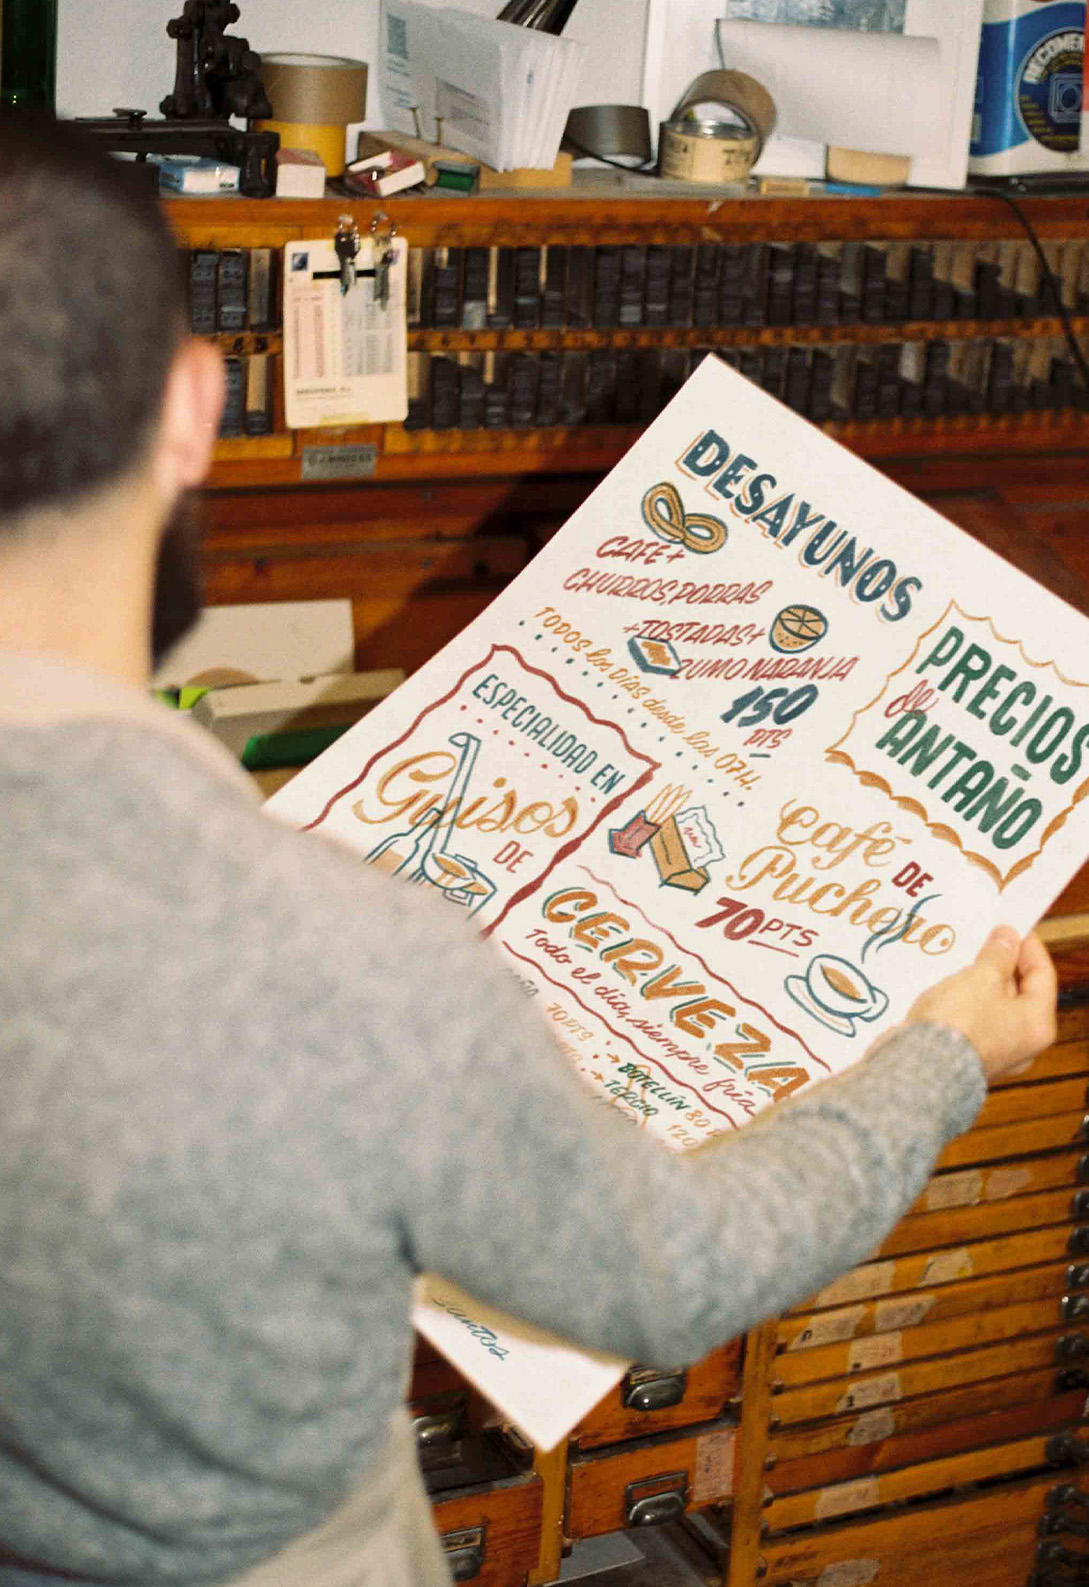 DESAYUNOS
CAFE +
CHURROS, PORRAS
+TOSTADAS+
ZUMO NARANJA
150
PTS
TODOS los DÍAS desde las 07H.
PRECIOS
de
ANTAÑO
ESPECIALIDAD EN
Guisos
DE
Café DE
Puchero
70 PTS
CERVEZA
Todo el día, siempre fría
70 PTS
BOTELLÍN 80
TERCIO 120
santos